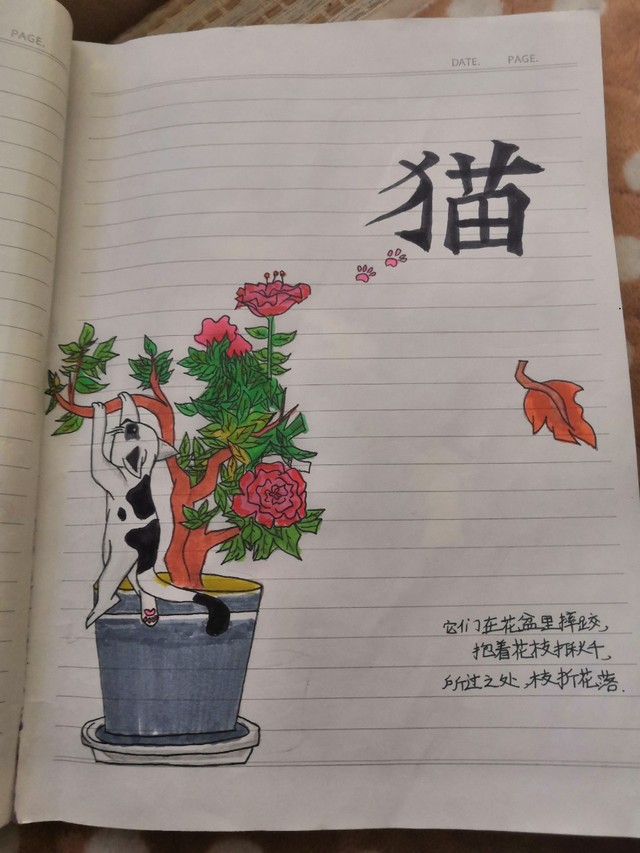 PAGE.
DATE. PAGE.
猫
它们在花盆里摔跤,
抱着花枝打秋千,
所过之处,枝折花落.